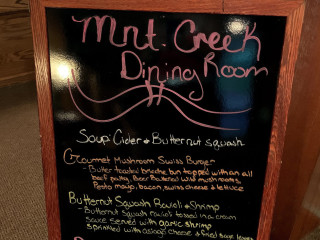 Mnt. Creek
Dining Room
Soup Cider & Butternut squash
Gourmet Mushroom Swiss Burger
- Butter toasted brioche bun topped with an all
beef patty, Beer Battered wild mushrooms,
Pesto mayo, bacon, swiss cheese & lettuce
Butternut Squash Ravioli & Shrimp
- Butternut squash ravioli tossed in a cream
sauce served with garlic shrimp
sprinkled with asiago cheese & fried sage leaves